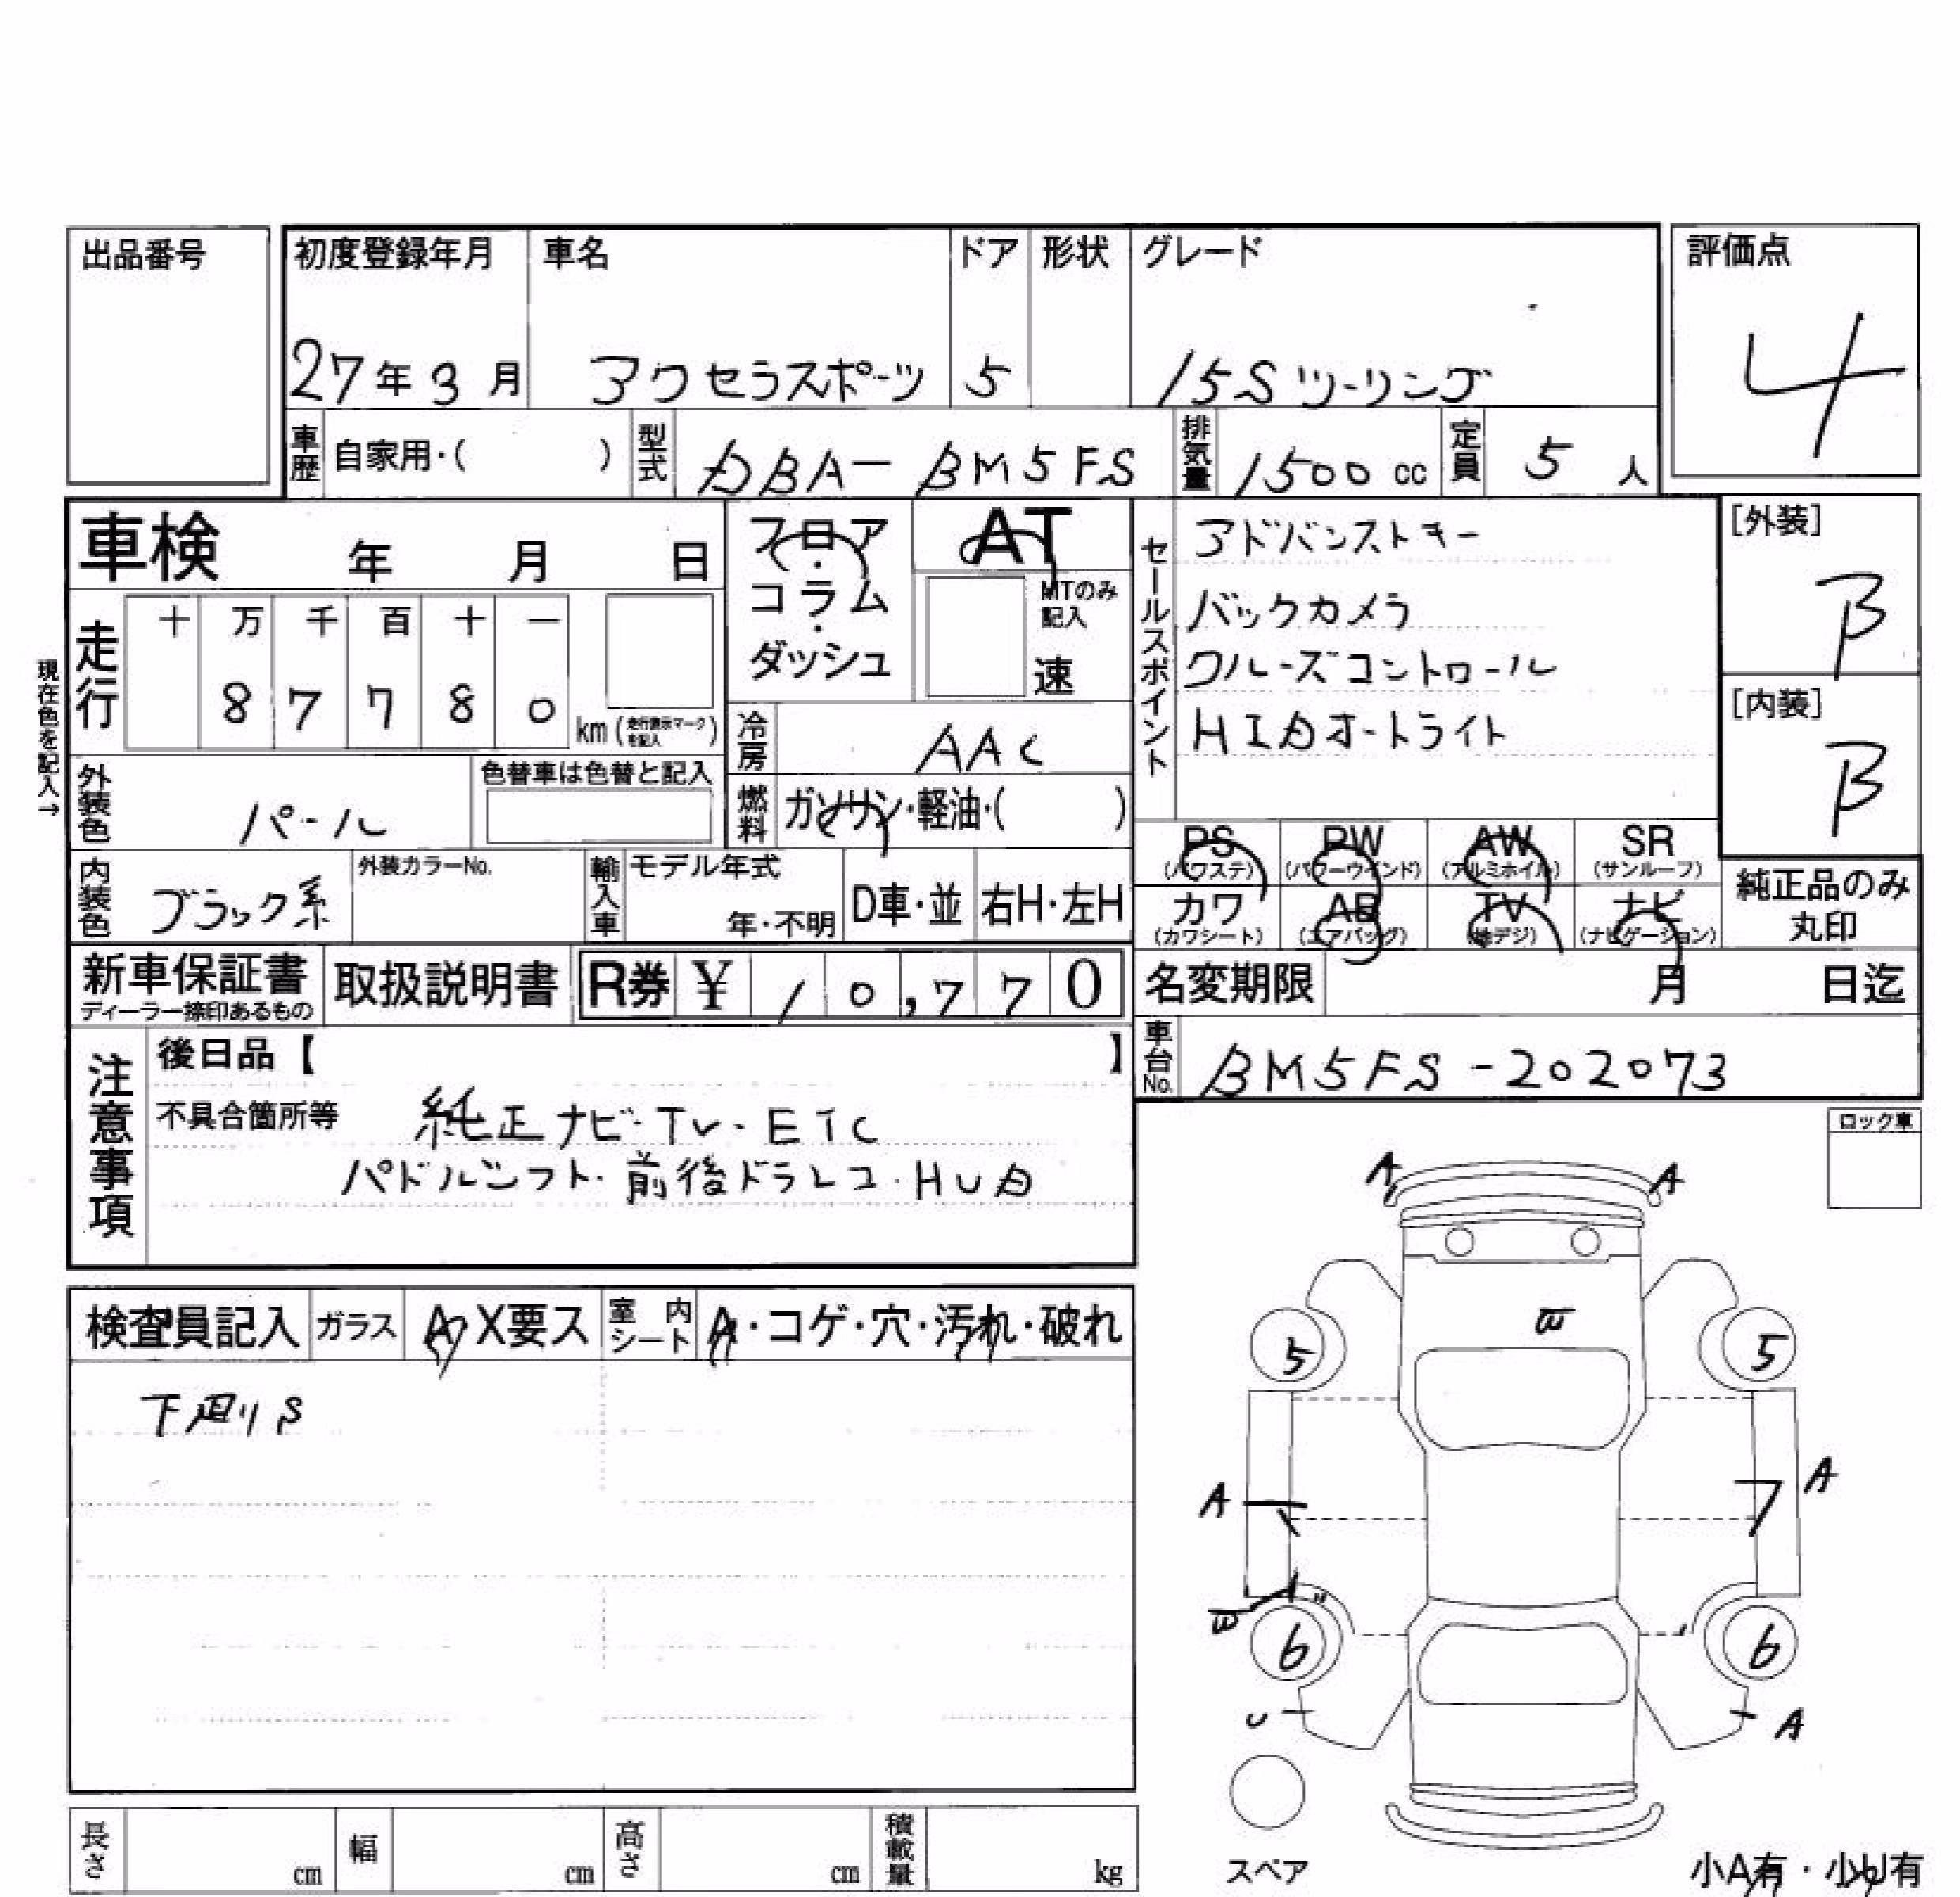 出品番号
初度登録年月 車名 ドア 形状 グレード
評価点
27年3月 アクセラスポーツ 5 15Sツーリング
4
車歴 自家用・( ) 型式 DBA-BM5FS 排気量 1500cc 定員 5人
車検 年 月 日
フロア・コラム・ダッシュ
AT
MTのみ記入
速
セールスポイント
アドバンストキー
バックカメラ
クルーズコントロール
HIDオートライト
[外装]
B
[内装]
B
現在色を記入→
走行 十 万 千 百 十 一
8 7 7 8 0 km(走行表示マークを記入)
冷房 AAC
外装色 パール 色替車は色替と記入
燃料 ガソリン・軽油・( )
PS (パワステ) PW (パワーウインド) AW (アルミホイル) SR (サンルーフ)
カワ (カワシート) AB (エアバッグ) TV (地デジ) ナビ (ナビゲーション)
純正品のみ丸印
内装色 ブラック系 外装カラーNo. 輸入車 モデル年式 年・不明 D車・並 右H・左H
新車保証書 ディーラー捺印あるもの 取扱説明書 R券 ¥ 10,770
名変期限 月 日迄
車台No. BM5FS-202073
注意事項
後日品【 】
不具合箇所等 純正ナビ・TV・ETC
パドルシフト・前後ドラレコ・HUD
ロック車
検査員記入 ガラス A X要ス 室内シート A・コゲ・穴・汚れ・破れ
下廻りS
A A
W
5 5
A A
W
6 6
U A
スペア
小A有・小U有
長さ cm 幅 cm 高さ cm 積載量 kg